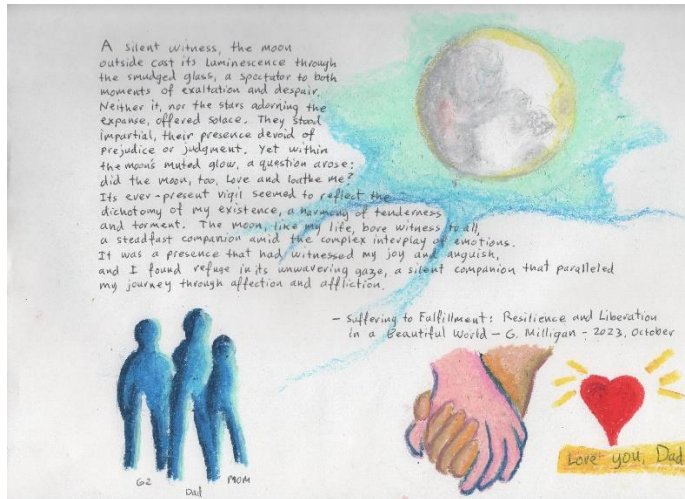 A silent witness, the moon
outside cast its luminescence through
the smudged glass, a spectator to both
moments of exaltation and despair.
Neither it, nor the stars adorning the
expanse, offered solace. They stood
impartial, their presence devoid of
prejudice or judgment. Yet within
the moon's muted glow, a question arose:
did the moon, too, Love and loathe me?
Its ever-present vigil seemed to reflect the
dichotomy of my existence, a harmony of tenderness
and torment. The moon, like my life, bore witness to all,
a steadfast companion amid the complex interplay of emotions.
It was a presence that had witnessed my joy and anguish,
and I found refuge in its unwavering gaze, a silent companion that paralleled
my journey through affection and affliction.
- Suffering to Fulfillment: Resilience and Liberation
in a Beautiful World - G. Milligan - 2023, October
G2
Dad
MOM
Love you, Dad